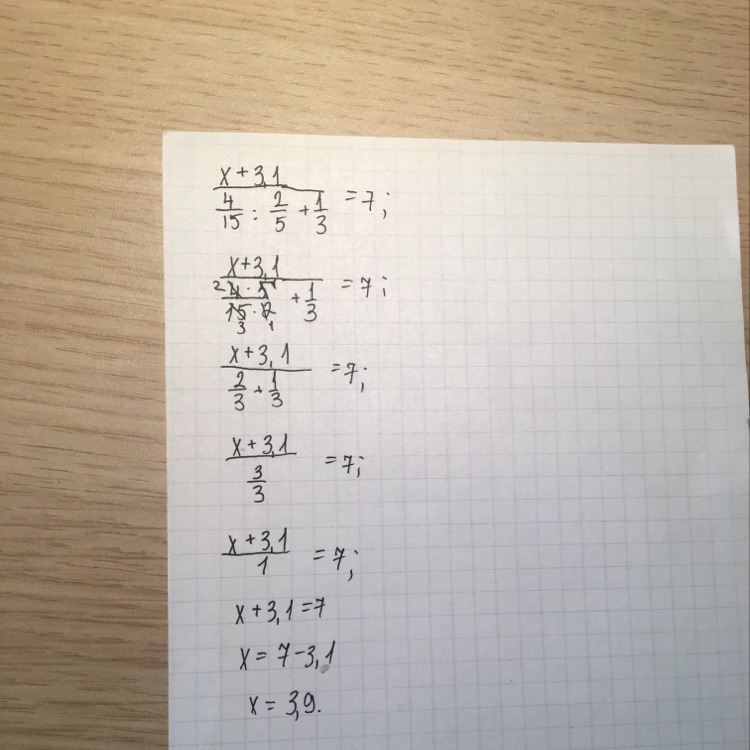 (x+3,1)/(4/15 : 2/5 + 1/3) = 7;
(x+3,1)/((4·5)/(15·2) + 1/3) = 7; 2 1 3 1
(x+3,1)/(2/3 + 1/3) = 7;
(x+3,1)/(3/3) = 7;
(x+3,1)/1 = 7;
x+3,1=7
x=7-3,1
x=3,9.